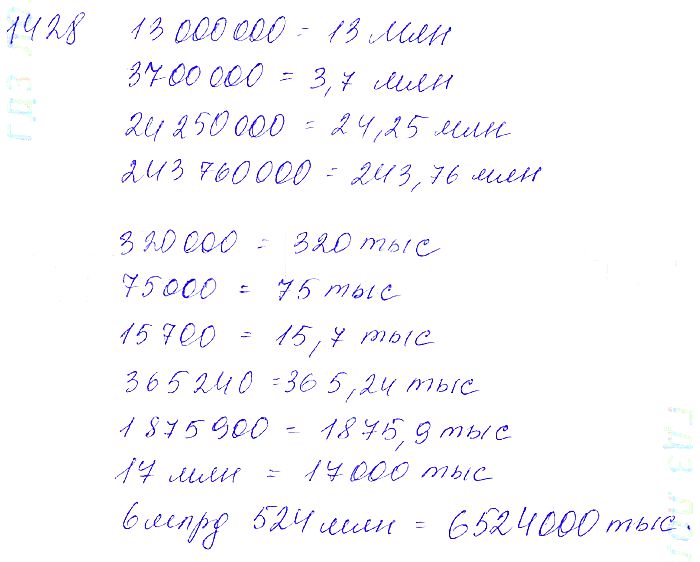 1428 13 000 000 = 13 млн
3 700 000 = 3,7 млн
24 250 000 = 24,25 млн
243 760 000 = 243,76 млн
320000 = 320 тыс
75000 = 75 тыс
15700 = 15,7 тыс
365240 = 365,24 тыс
1875900 = 1875,9 тыс
17 млн = 17000 тыс
6 млрд 524 млн = 6524000 тыс.